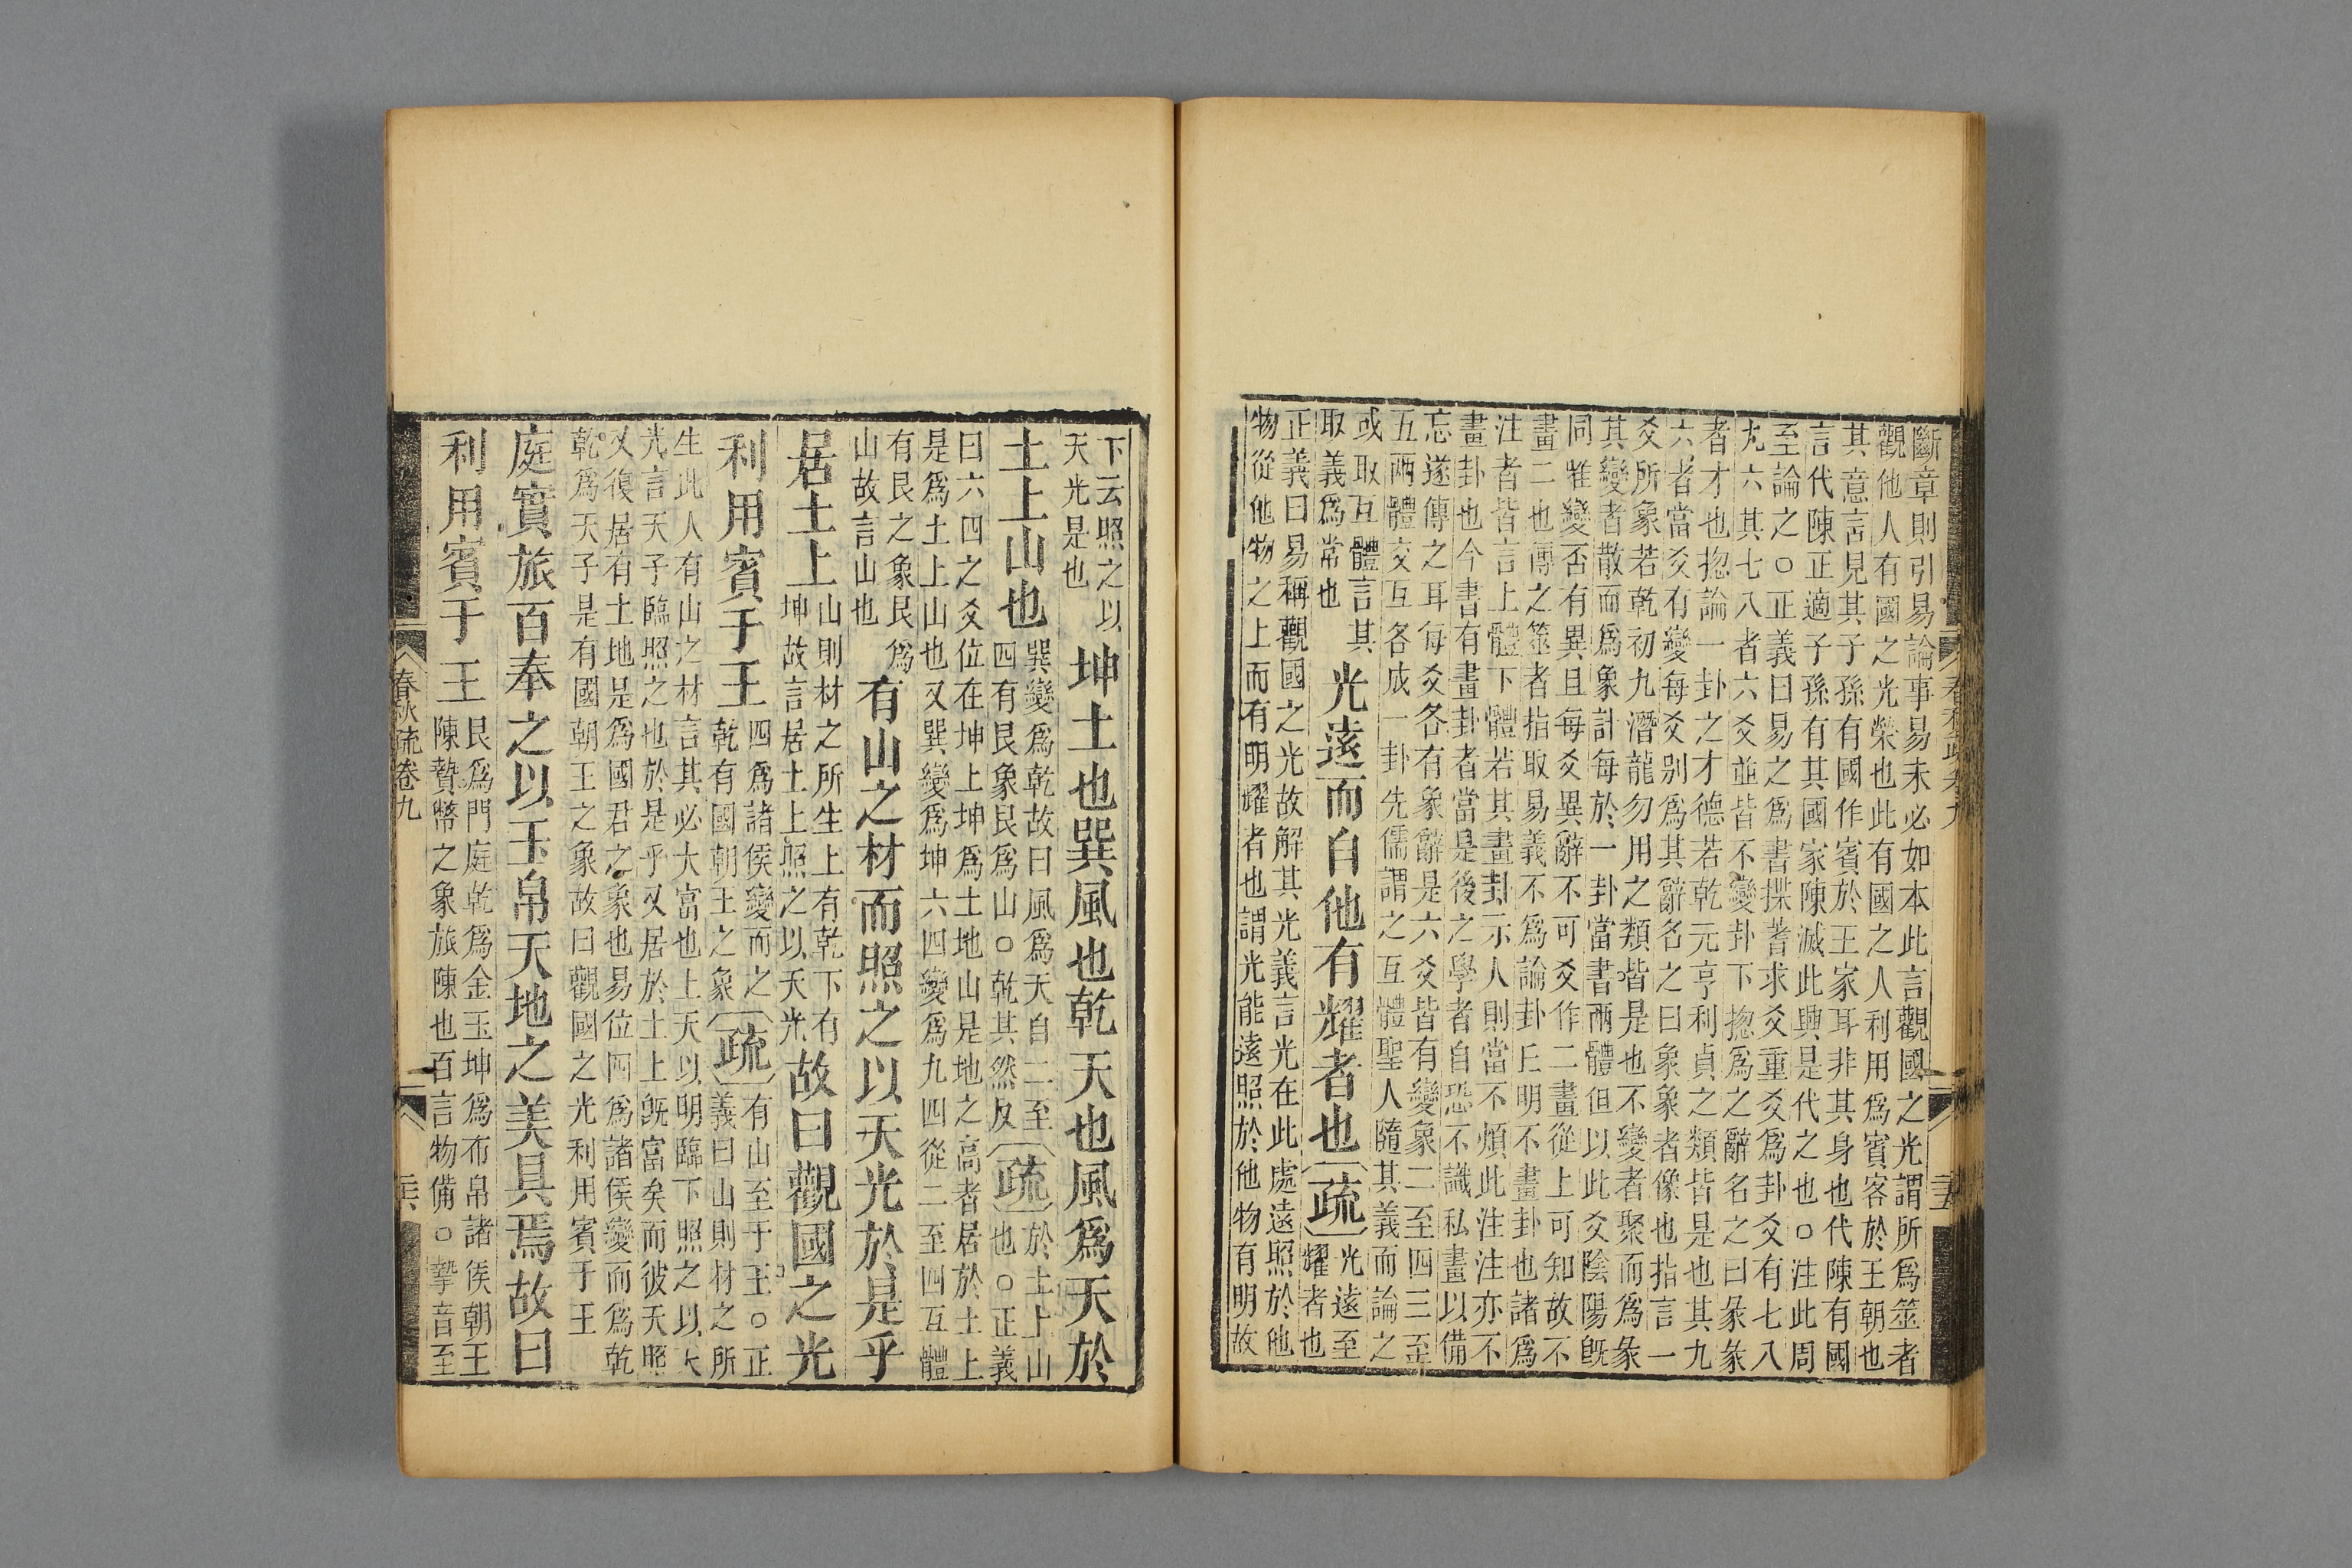 斷章則引易論事易未必如本此言觀國之光謂所爲筮者
觀他人有國之光榮也此有國之人利用爲賓客於王朝也
其意言見其子孫有國作賓於王家耳非其身也代陳有國
言代陳正適子孫有其國家陳滅此興是代之也○注此周
至論之○正義曰易之爲書揲蓍求爻重爻爲卦爻有七八
九六其七八者六爻並皆不變卦下揔爲之辭名之曰彖彖
者才也揔論一卦之才德若乾元亨利貞之類皆是也其九
六者當爻有變每爻别爲其辭名之曰象象者像也指言一
爻所象若乾初九潛龍勿用之類皆是也不變者聚而爲彖
其變者散而爲象計每於一卦當書兩體但以此爻陰陽旣
同唯變否有異且每爻異辭不可爻作二畫從上可知故不
畫二也傳之筮者指取易義不爲論卦丘明不畫卦也諸爲
注者皆言上體下體若其畫卦示人則當不煩此注注亦不
畫卦也今書有畫卦者當是後之學者自恐不識私畫以備
忘遂傳之耳每爻各有象辭是六爻皆有變象二至四三至
五兩體交互各成一卦先儒謂之互體聖人隨其義而論之
或取互體言其
取義爲常也
光遠而自他有耀者也
疏
光遠至
耀者也
正義曰易稱觀國之光故解其光義言光在此處遠照於他
物從他物之上而有明耀者也謂光能遠照於他物有明故
下云照之以
天光是也
坤土也巽風也乾天也風爲天於
土上山也
巽變爲乾故曰風爲天自二至
四有艮象艮爲山○乾其然反
疏
於土上山
也○正義
曰六四之爻位在坤上坤爲土地山是地之高者居於土上
是爲土上山也又巽變爲坤六四變爲九四從二至四互體
有艮之象艮爲
山故言山也
有山之材而照之以天光於是乎
居土上
山則材之所生上有乾下有
坤故言居土上照之以天光
故曰觀國之光
利用賓于王
四爲諸侯變而之
乾有國朝王之象
疏
有山至于王○正
義曰山則材之所
生此人有山之材言其必大富也上天以明臨下照之以天
光言天子臨照之也於是乎又居於土上旣富矣而彼天照
又復居有土地是爲國君之象也易位四爲諸侯變而爲乾
乾爲天子是有國朝王之象故曰觀國之光利用賓于王
庭實旅百奉之以玉帛天地之美具焉故曰
利用賓于王
艮爲門庭乾爲金玉坤爲布帛諸侯朝王
陳贄幣之象旅陳也百言物備○摯音至
春秋疏卷九